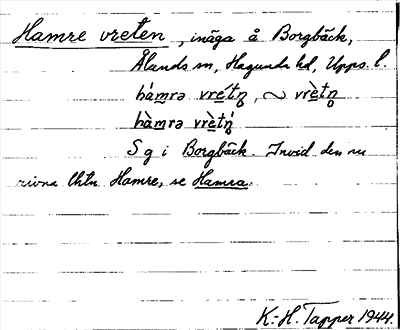 Hamre vreten, inäga å Borgbäck,
Ålands sn, Hagunda hd, Upps. l.
hámrə vrétn̥, ~ vrètn̥
hàmrə vrètń̥
S g i Borgbäck. Invid den nu
rivna lht. Hamre, se Hamra.
K.-H. Tapper 1944.